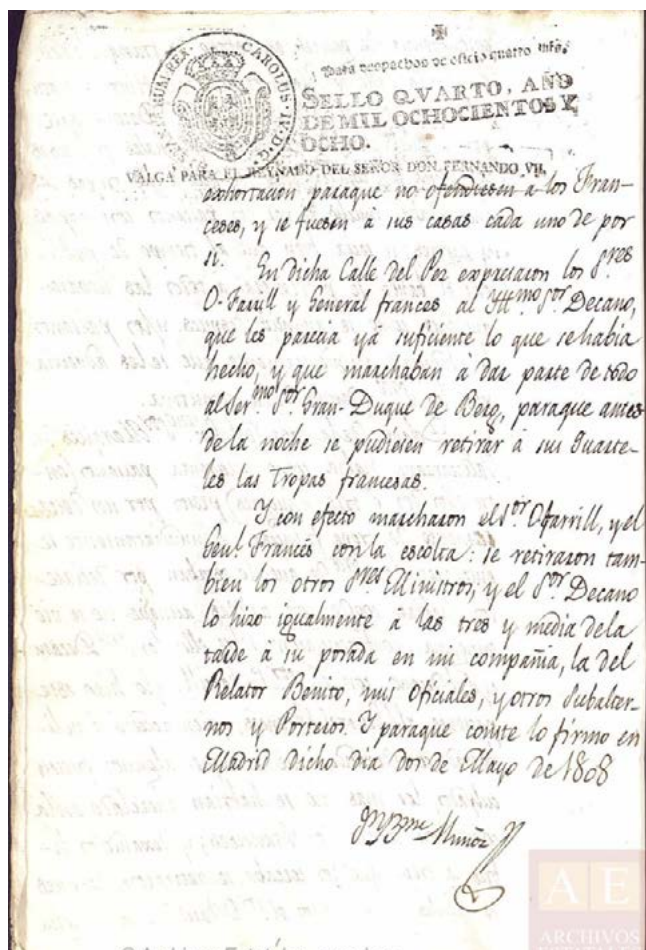 CAROLUS IV D. G. HISPANIAR. REX
Para despachos de oficio quatro mrs.
SELLO QVARTO, AÑO
DE MIL OCHOCIENTOS Y
OCHO.
VALGA PARA EL REYNADO DEL SEÑOR DON FERNANDO VII.
exhortacion paraque no ofendiesen a los Fran-
ceses, y se fuesen a sus casas cada uno de por
si. En dicha Calle del Pez expresaron los Sres
O-Farull y General frances al Ittmo Sor Decano,
que les parecia ya suficiente lo que se habia
hecho, y que marchaban à dar parte de todo
al Sermo Sor Gran-Duque de Berg, paraque antes
de la noche se pudiesen retirar à sus Quarte-
les las Tropas francesas.
Y con efecto marcharon el Sor Ofarrill, y el
Genl Frances con la escolta: se retiraron tam-
bien los otros Sres Ministros, y el Sor Decano
lo hizo igualmente à las tres y media dela
tarde à su posada en mi compañia, la del
Relator Benito, mis oficiales, y otros Subalter-
nos y Porteros. Y paraque conste lo firmo en
Madrid dicho dia dos de Mayo de 1808
Muñoz
AE
ARCHIVOS